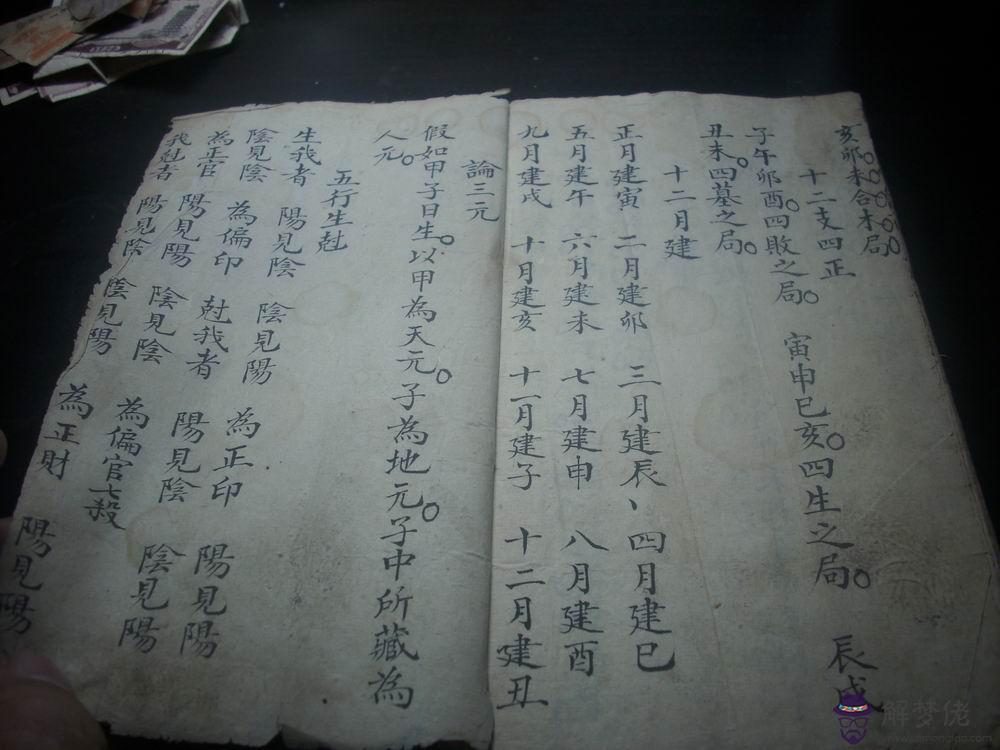 亥卯未合木局。
十二支四正
子午卯酉。四敗之局。 寅申巳亥。四生之局。 辰戌
丑未。四墓之局。
十二月建
正月建寅 二月建卯 三月建辰、 四月建巳
五月建午 六月建未 七月建申 八月建酉
九月建戌 十月建亥 十一月建子 十二月建丑
論三元
假如甲子日生。以甲為天元。子為地元。子中所藏為
人元。
五行生尅
生我者 陽見陰 陰見陽 為正印 陽見陽
陰見陰 為偏印 尅我者 陽見陰 陰見陽
為正官 陽見陽 陰見陰 為偏官七殺
我尅者 陽見陰 陰見陽 為正財 陽見陽
解梦佬